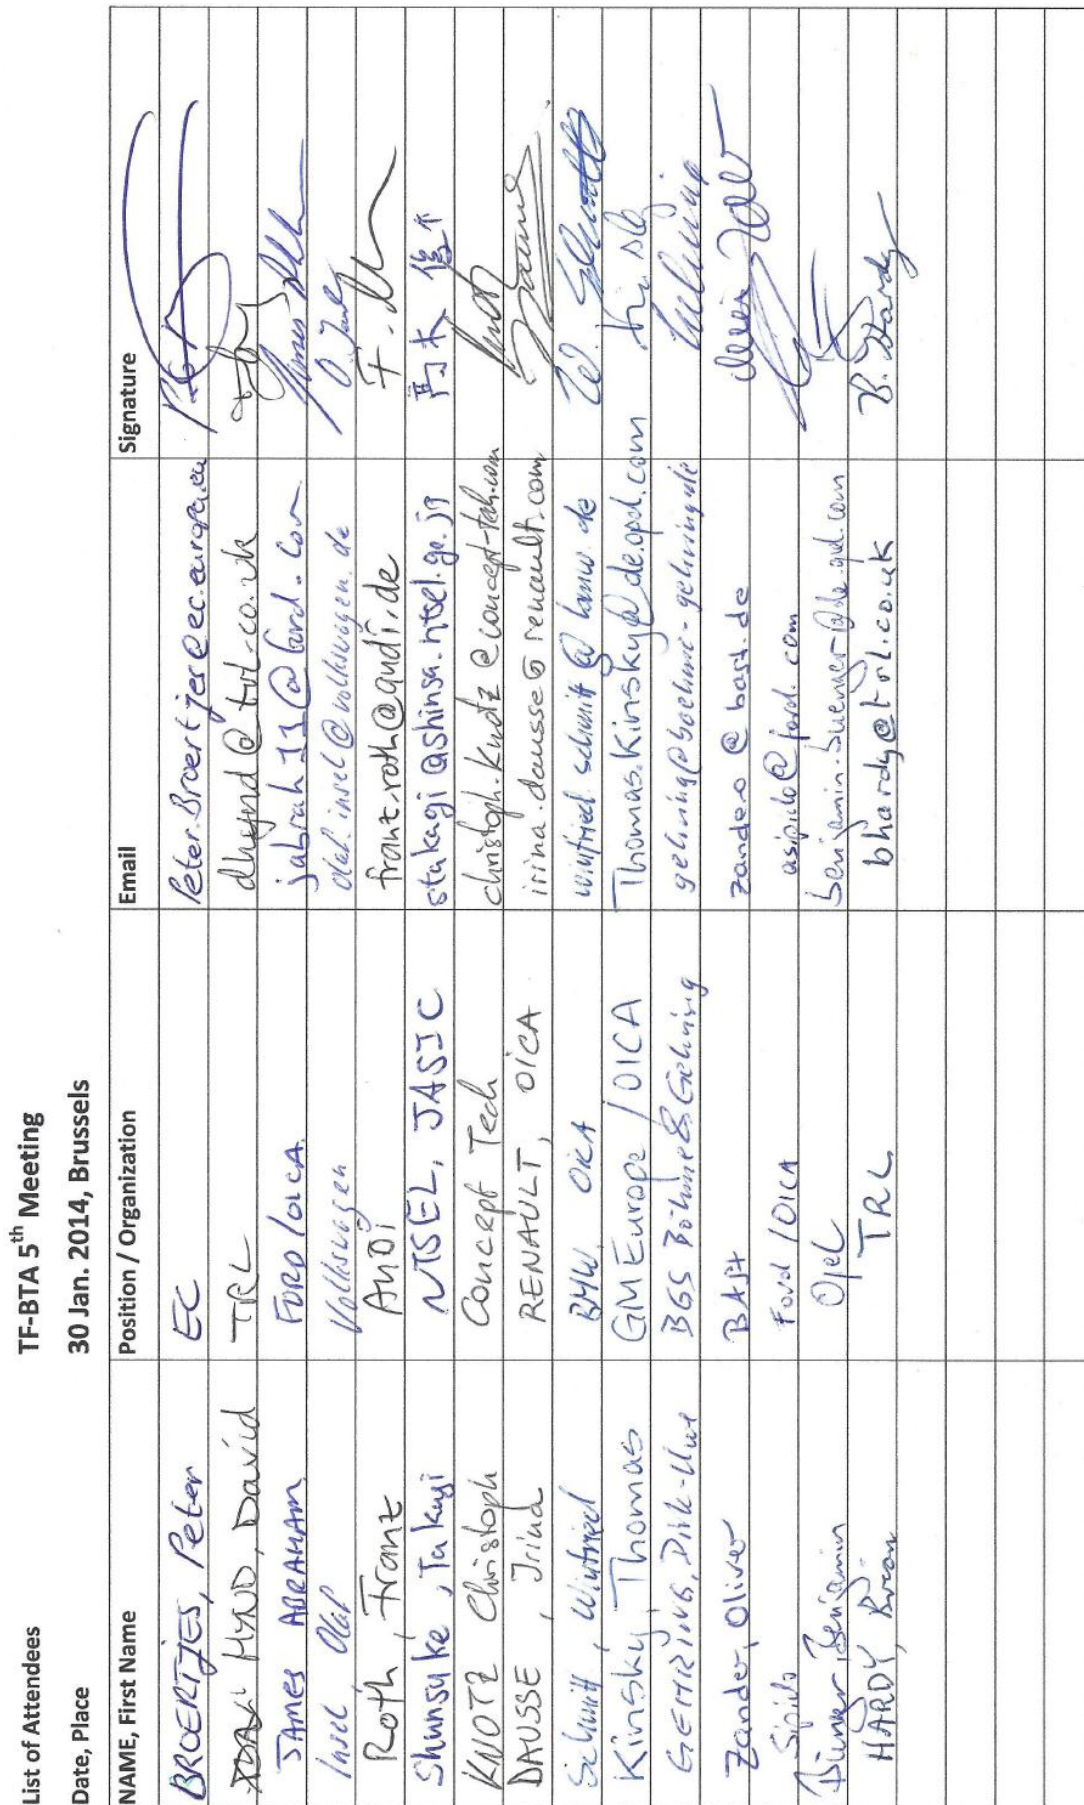 List of Attendees TF-BTA 5th Meeting
Date, Place 30 Jan. 2014, Brussels
NAME, First Name Position / Organization Email Signature
BROERTJES, Peter EC Peter.Broertjes@ec.europa.eu
HYND, David TRL dhynd@trl.co.uk
JAMES ABRAHAM FORD/OICA jabrah11@ford.com
Insel Olaf Volkswagen olaf.insel@volkswagen.de
Roth, Franz AUDI franz.roth@audi.de
Shunsuke, Takagi NTSEL, JASIC stakagi@shinsa.ntsel.go.jp
KNOTZ Christoph Concept Tech christoph.knotz@concept-tech.com
DAUSSE, Irina RENAULT, OICA irina.dausse@renault.com
Schmitt, Winfried BMW OICA winfried.schmitt@bmw.de W. Schmitt
Kinsky, Thomas GM Europe / OICA Thomas.Kinsky@de.opel.com
GEHRING, Dirk-Uwe BGS Böhme & Gehring
Zander, Oliver BASt zander@bast.de
Sipido Ford / OICA asipido@ford.com
Bünger, Benjamin Opel
HARDY, Brian TRL bhardy@trl.co.uk B. Hardy